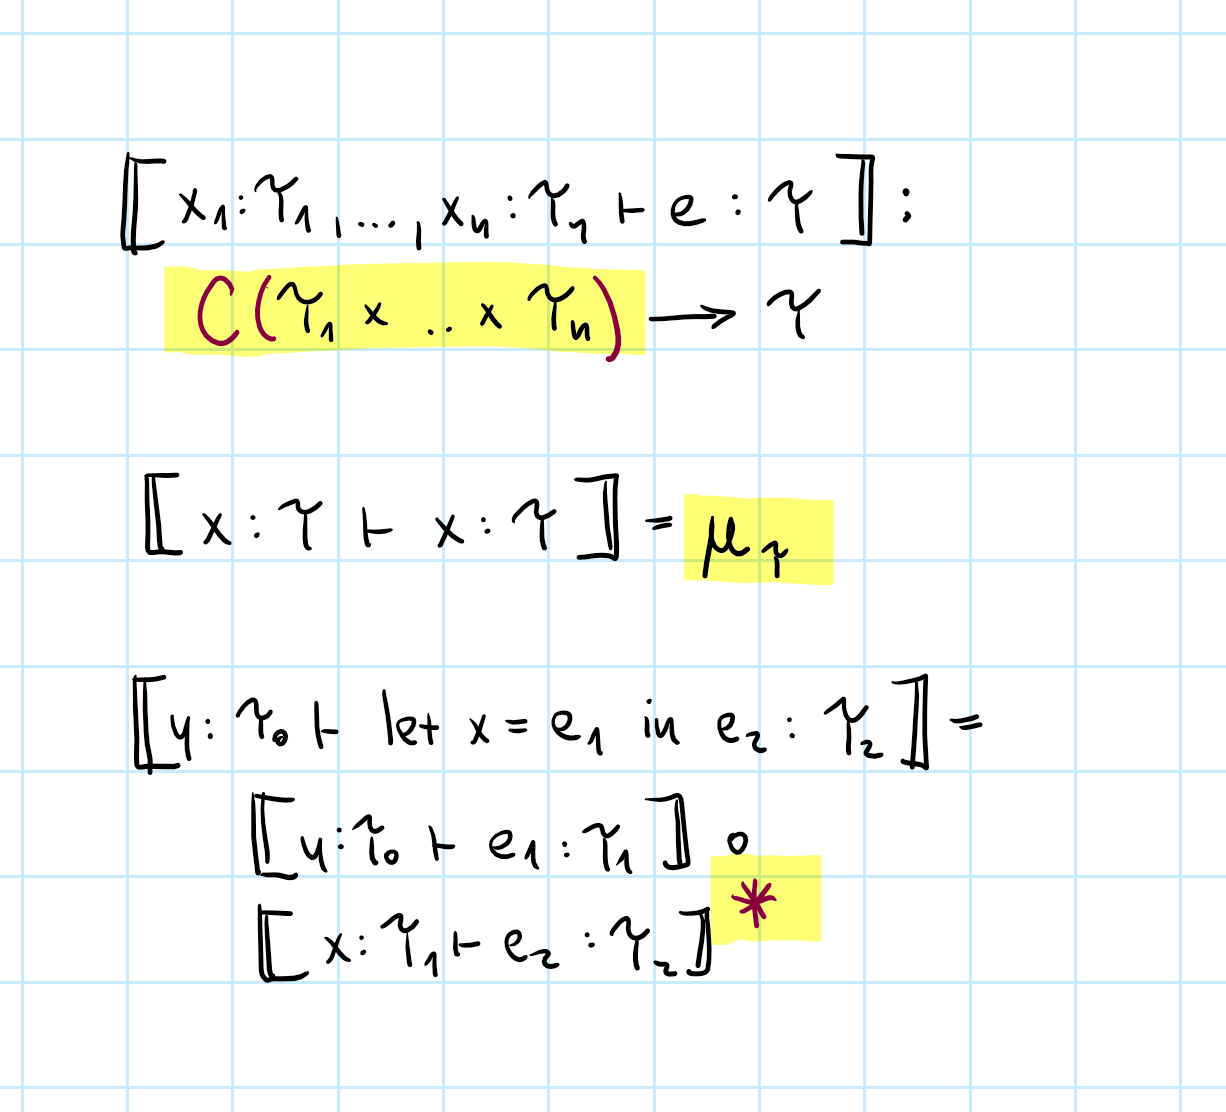 ⟦ x₁:τ₁,...,xₙ:τₙ ⊢ e : τ ⟧ :
C(τ₁ × .. × τₙ) ⟶ τ
⟦ x : τ ⊢ x : τ ⟧ = μ_τ
⟦ y : τ₀ ⊢ let x = e₁ in e₂ : τ₂ ⟧ =
⟦ y : τ₀ ⊢ e₁ : τ₁ ⟧ ∘
⟦ x : τ₁ ⊢ e₂ : τ₂ ⟧ *